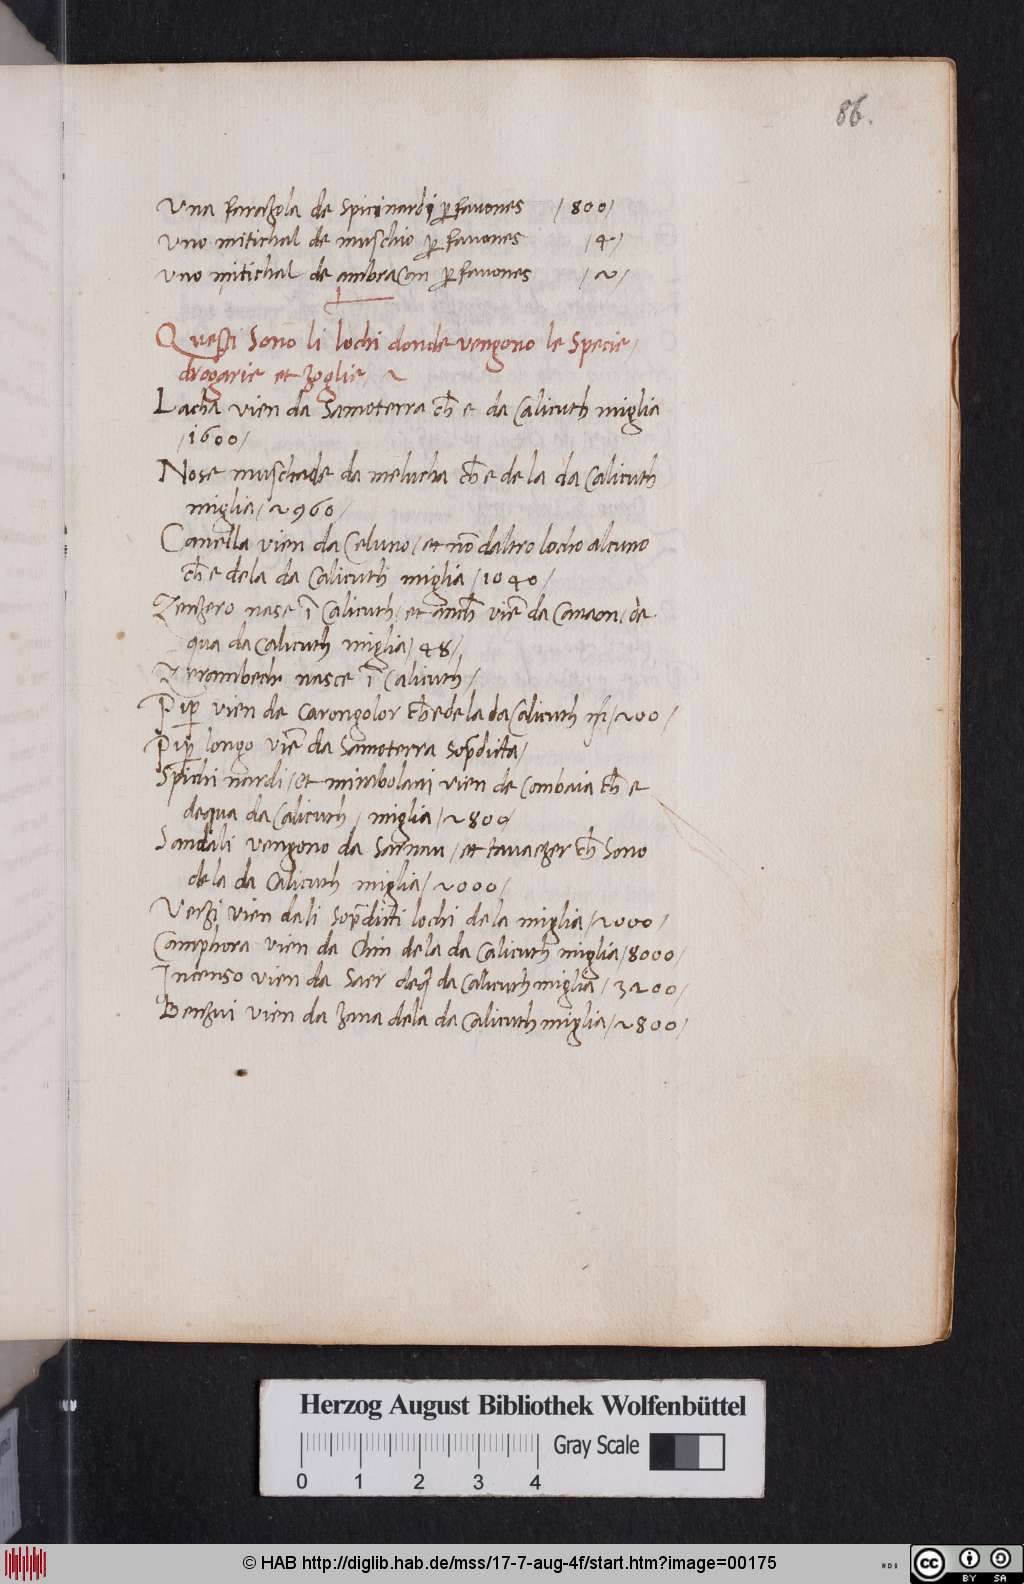 86.
Una farazola de Spicinardi p fanones /800/
Uno mitichal de muschio p fanones /4/
Uno mitichal de ambra Can p fanones /2/
Questi Sono li lochi donde vengono le Specie/
drogarie et zoglie
Lacha vien da Samoterra ch e da Calicuth miglia
/1600/
Nose muschade da melucha ch e de la da Calicuth
miglia /2960/
Canella vien da Celuno/ et nō daltro locho alcuno
ch e dela da Calicuth miglia /1040/
Zenzero nase ī Calicuth/ et anch viē da Canaon/ de
qua da Calicuth miglia/ 48/
Zerambech nasce ī Calicuth/
Pip vien de Carongolor ch e de la da Calicuth /200/
Pip longo viē da Samoterra Sopdicta/
Spichi nardi/ et mirabolani vien de Combaia ch e
dequa da Calicuth/ miglia /2800/
Sandali vengono da Sarnau/ et tanaezer ch Sono
dela da Calicuth miglia/ 2000/
Verzi vien dali Sopdicti lochi dela miglia/2000/
Camphora vien da Chin dela da Calicuth miglia/8000/
Incenso vien da Saer deq da Calicuth miglia/ 3200/
Benzui vien da Zana dela da Calicuth miglia/2800/
Herzog August Bibliothek Wolfenbüttel
Gray Scale
0 1 2 3 4
© HAB http://diglib.hab.de/mss/17-7-aug-4f/start.htm?image=00175
cc BY SA